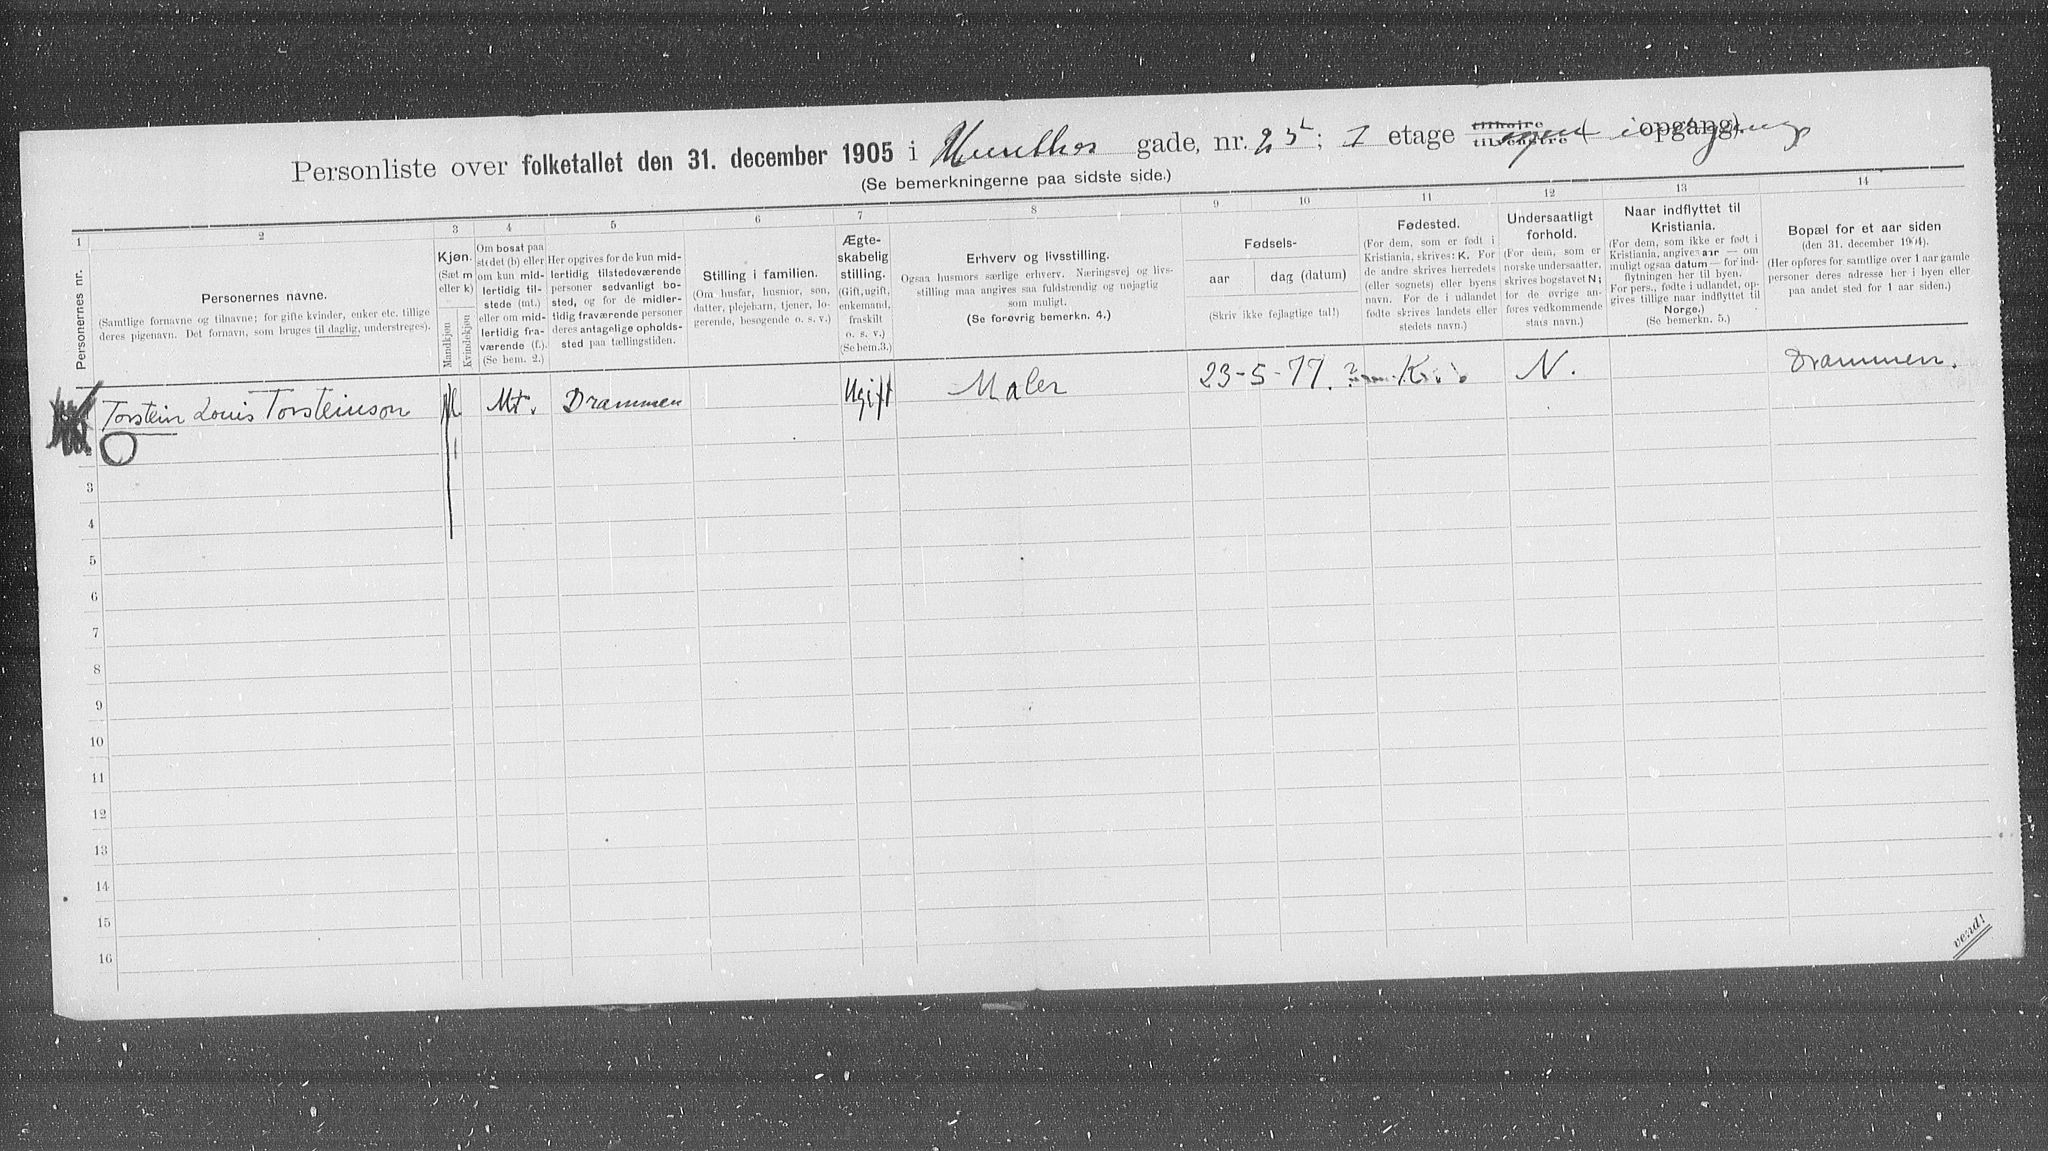 Personliste over folketallet den 31. december 1905 i Munthes gade, nr. 23; 1 etage tilhøire tilvenstre opgang).
(Se bemerkningerne paa sidste side.)
1 2 3 4 5 6 7 8 9 10 11 12 13 14
Personernes nr.
Personernes navne.
(Samtlige fornavne og tilnavne; for gifte kvinder, enker etc. tillige
deres pigenavn. Det fornavn, som bruges til daglig, understreges).
Kjøn.
(Sæt m
eller k)
Mandkjøn
Kvindekjøn
Om bosat paa
stedet (b) eller
om kun mid-
lertidig til-
stede (mt.)
eller om mid-
lertidig fra-
værende (f.).
(Se bem. 2.)
Her opgives for de kun mid-
lertidig tilstedeværende
personer sedvanligt bo-
sted, og for de midler-
tidig fraværende personer
deres antagelige opholds-
sted paa tællingstiden.
Stilling i familien.
(Om husfar, husmor, søn,
datter, plejebarn, tjener, lo-
gerende, besøgende o. s. v.)
Ægte-
skabelig
stilling.
(Gift, ugift,
enkemand,
fraskilt
o. s. v.)
(Se bem. 3.)
Erhverv og livsstilling.
Ogsaa husmors særlige erhverv. Næringsvej og livs-
stilling maa angives saa fuldstændig og nøjagtig
som muligt.
(Se forøvrig bemerkn. 4.)
Fødsels-
aar
dag (datum)
(Skriv ikke fejlagtige tal!)
Fødested.
(For dem, som er født i
Kristiania, skrives: K. For
de andre skrives herredets
(eller sognets) eller byens
navn. For de i udlandet
fødte skrives landets eller
stedets navn.)
Undersaatligt
forhold.
(For dem, som er
norske undersaatter,
skrives bogstavet N;
for de øvrige an-
føres vedkommende
stats navn.)
Naar indflyttet til
Kristiania.
(For dem, som ikke er født i
Kristiania, angives aar — om
muligt ogsaa datum — for ind-
flytningen her til byen.
For pers., fødte i udlandet, op-
gives tillige naar indflyttet til
Norge.)
(Se bemerkn. 5.)
Bopæl for et aar siden
(den 31. december 1904).
(Her opføres for samtlige over 1 aar gamle
personer deres adresse her i byen eller
paa andet sted for 1 aar siden.)
Torstein Louis Torsteinson Mt. Drammen Ugift Maler 23-5-77. N. Drammen.
3
4
5
6
7
8
9
10
11
12
13
14
15
16
vend!